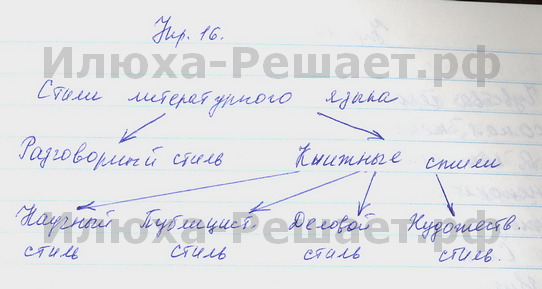 Упр. 16.
Илюха-Решает.рф
Стили литературного языка
Разговорный стиль Книжные стили
Научный Публицист. Деловой Художеств.
стиль стиль стиль стиль.
Илюха-Решает.рф